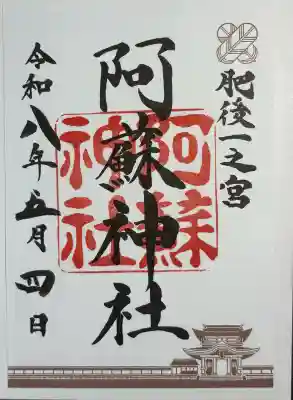 肥後一之宮
阿蘇神社
阿蘇
神社
令和八年五月四日